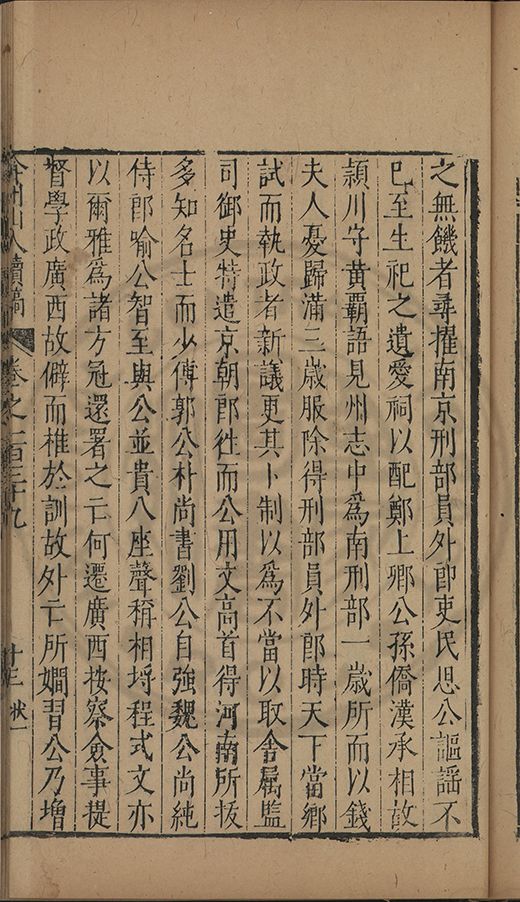 之無饑者尋擢南京刑部員外郎吏民思公謳謡不
已至生祀之遺愛祠以配鄭上卿公孫僑漢丞相故
潁川守黄覇語見州志中爲南刑部一歲所而以錢
夫人憂歸滿三歲服除得刑部員外郎時天下當鄉
試而執政者新議更其卜制以爲不當以取舎属監
司御史特遣京朝郎徃而公用文高首得河南所拔
多知名士而少傅郭公朴尚書劉公自強魏公尚純
侍郎喻公智至與公並貴八座聲稱相埒程式文亦
以爾雅爲諸方冠還署之亡何遷廣西按察僉事提
督學政廣西故僻而椎於訓故外亡所嫺習公乃増
弇州山人續稿 卷之一百三十九 十三 状一